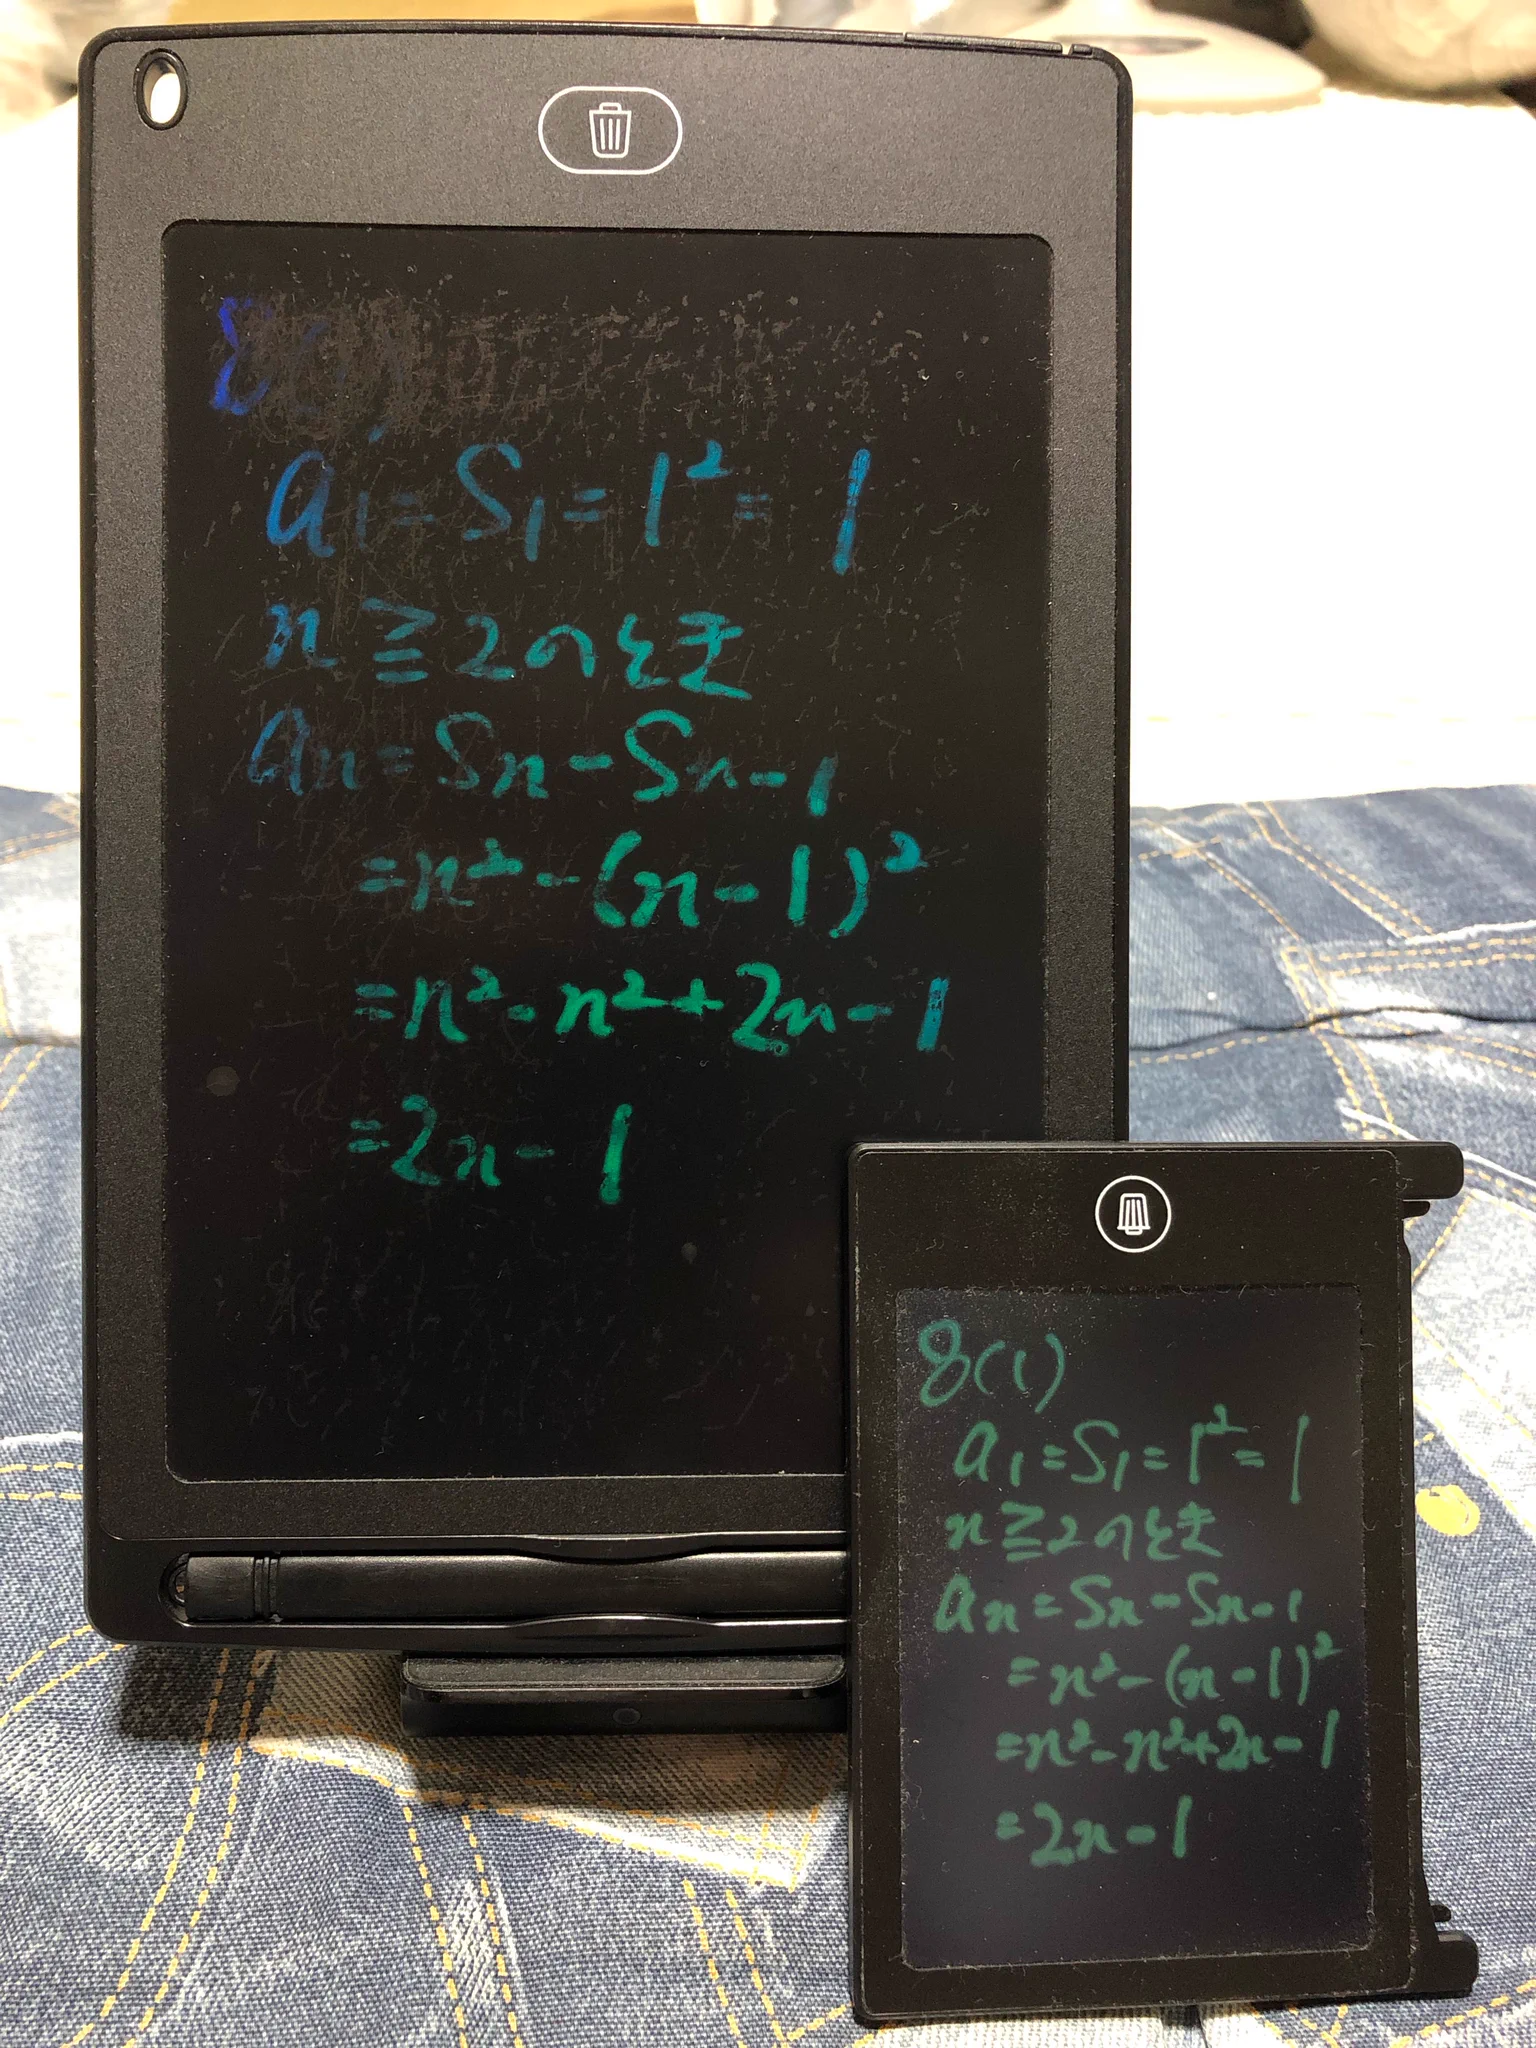 8(1
a₁=S₁=1²=1
n≧2のとき
an=Sn-Sn-1
=n²-(n-1)²
=n²-n²+2n-1
=2n-1
8(1)
a₁=S₁=1²=1
n≧2のとき
an=Sn-Sn-1
=n²-(n-1)²
=n²-n²+2n-1
=2n-1